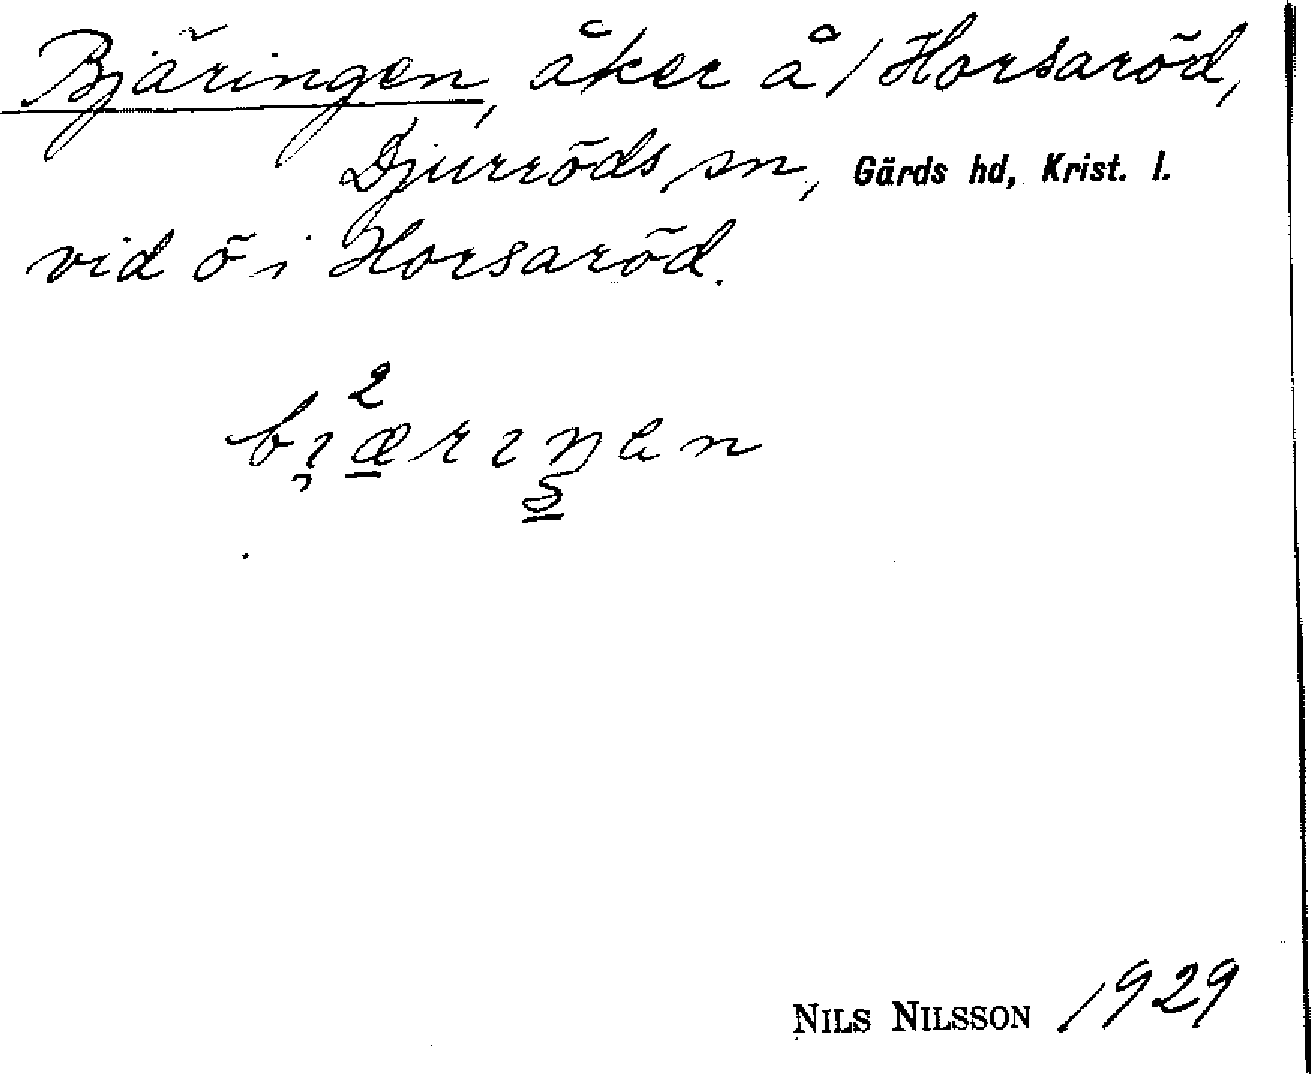 Bjäringen, åker å / Horsaröd,
Djurröds sn, Gärds hd, Krist. l.
vid ö i Horsaröd.
2
bı̯æ̲rıŋen
s̲
NILS NILSSON 1929